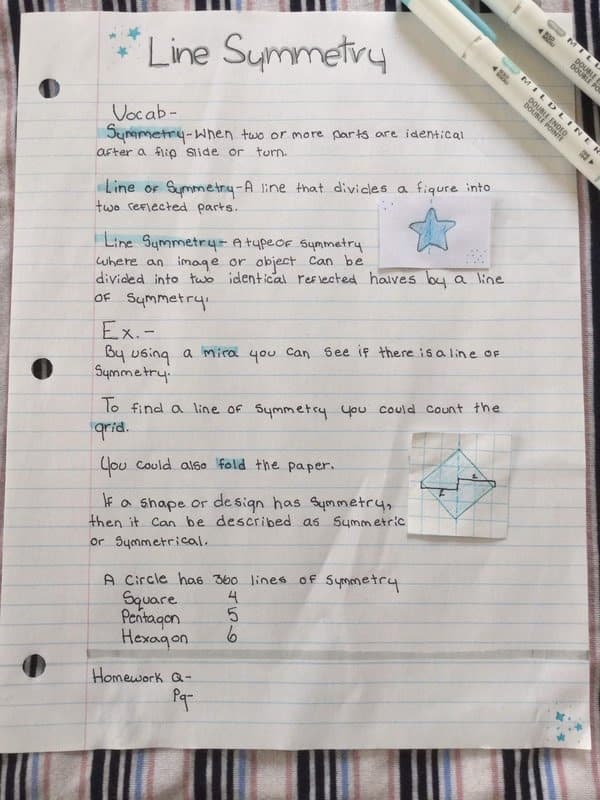 Line Symmetry
Vocab-
Symmetry-When two or more parts are identical
after a flip slide or turn.
Line of Symmetry-A line that divides a figure into
two reflected parts.
Line Symmetry- A type of symmetry
where an image or object can be
divided into two identical reflected halves by a line
of symmetry.
Ex.-
By using a mira you can see if there is a line of
symmetry.
To find a line of symmetry you could count the
grid.
You could also fold the paper.
2
2
If a shape or design has symmetry,
then it can be described as symmetric
or symmetrical.
A circle has 360 lines of symmetry
Square 4
Pentagon 5
Hexagon 6
Homework Q-
Pg-
MILDLINER
DOUBLE ENDED
DOUBLE POINTE